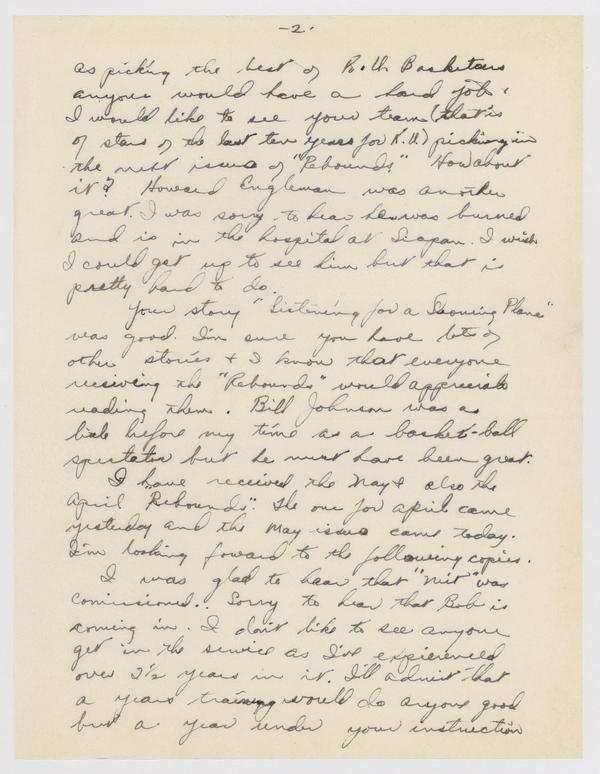 -2-
as picking the best of K.U. Basketeers
anyone would have a hard job.
I would like to see your team (that is
of stars of the last ten years for K.U.) picking in
the next issue of "Rebounds" How about
it? Howard Engleman was another
great. I was sorry to hear he was burned
and is in the hospital at Siapan. I wish
I could get up to see him but that is
pretty hard to do.
Your story "Listening for a Droning Plane"
was good. I'm sure you have lots of
other stories & I know that everyone
receiving the "Rebounds" would appreciate
reading them. Bill Johnson was a
little before my time as a basket-ball
spectator but he must have been great.
I have received the May & also the
April "Rebounds". The one for April came
yesterday and the May issue came today.
I'm looking foward to the following copies.
I was glad to hear that "Mit" was
comissioned.. Sorry to hear that Bob is
coming in. I don't like to see anyone
get in the service as I've expierenced
over 2½ years in it. I'll admit that
a years training would do anyone good
but a year under your instruction